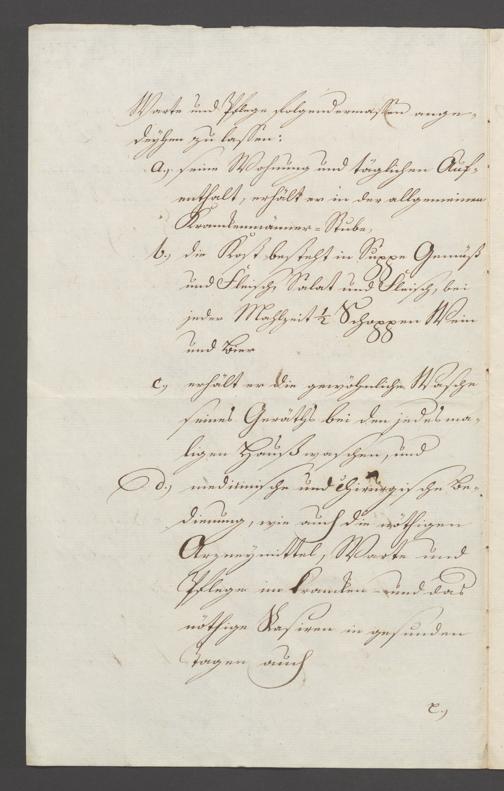 Warte und Pflege folgendermassen ange-
deyhen zu lassen:
a., seine Wohnung und täglichen Auf-
enthalt, erhält er in der allgemeinen
Krankenmänner-Stube,
b., die Kost besteht in Suppe Gemüß
und Fleisch, Salat und Fleisch, bei
jeder Mahlzeit ½ Schoppen Wein
und Bier
c., erhält er die gewöhnliche Wasche
seines Geräths bei den jedesma-
ligen Haußwaschen, und
d., medicinische und chirurgische Be-
dienung, wie auch die nöthigen
Arzneymittel, Warte und
Pflege im kranken- und das
nöthige Rasiren in gesunden
Tagen auch
e.,